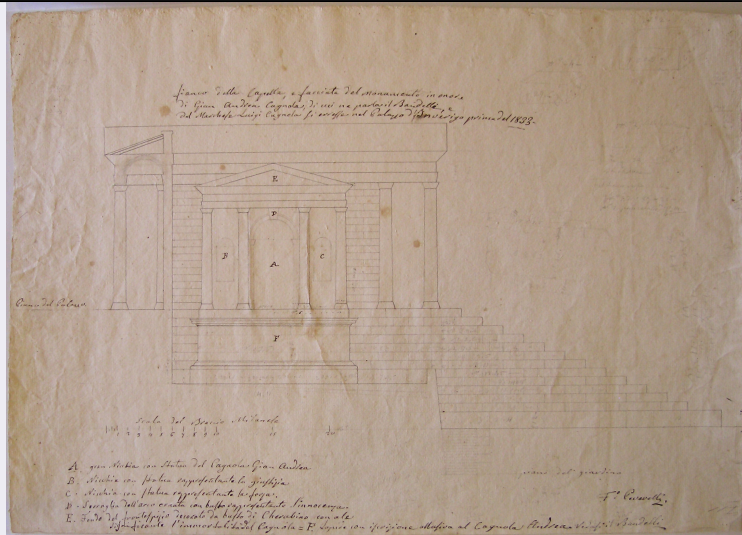 fianco della Capella, e facciata del Monumento in onore
di Gian Andrea Cagnola, di cui ne parla il Bandello, e
dal Marchese Luigi Cagnola si eresse nel Palazzo d'Inverigo prima del 1833.
E
D
B
A
C
F
Piano del Palazzo
Scala del Braccio Milanese
A. gran Nicchia con Statua del Cagnola Gian Andrea
B. Nicchia con statua rappresentante la Giustizia
C. Nicchia con statua rappresentante la forza,
D. Serraglia dell'arco ornata con busto rappresentante l'innocenza,
E. Fondo del frontespizio decorato da busto di Cherubino con ale
significante l'immortalità del Cagnola = F. con iscrizione allusiva al Cagnola Andrea
piano del giardino